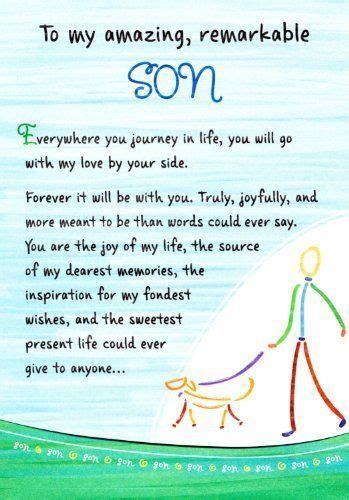 To my amazing, remarkable
SON
Everywhere you journey in life, you will go
with my love by your side.
Forever it will be with you. Truly, joyfully, and
more meant to be than words could ever say.
You are the joy of my life, the source
of my dearest memories, the
inspiration for my fondest
wishes, and the sweetest
present life could ever
give to anyone...
son son son son son son son son son son son